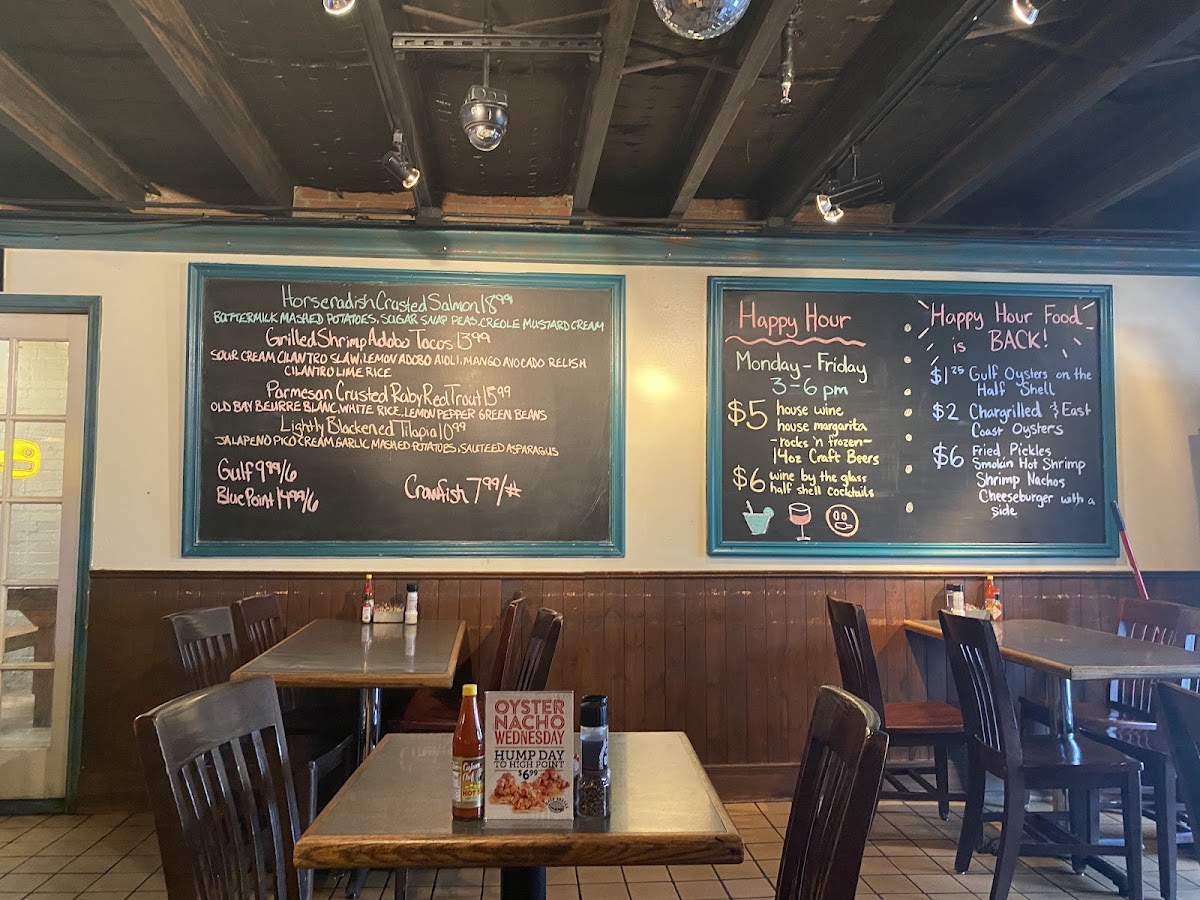 Horseradish Crusted Salmon 18.99
BUTTERMILK MASHED POTATOES, SUGAR SNAP PEAS, CREOLE MUSTARD CREAM
Grilled Shrimp Adobo Tacos 13.99
SOUR CREAM CILANTRO SLAW, LEMON ADOBO AIOLI, MANGO AVOCADO RELISH
CILANTRO LIME RICE
Parmesan Crusted Ruby Red Trout 15.99
OLD BAY BEURRE BLANC, WHITE RICE, LEMON PEPPER GREEN BEANS
Lightly Blackened Tilapia 10.99
JALAPENO PICO CREAM, GARLIC MASHED POTATOES, SAUTEED ASPARAGUS
Gulf 9.99/6
Blue Point 14.99/6
Crawfish 7.99/#
Happy Hour
Monday - Friday
3 - 6 pm
$5 house wine
house margarita
- rocks 'n frozen -
14oz Craft Beers
$6 wine by the glass
half shell cocktails
Happy Hour Food
is BACK!
$1.25 Gulf Oysters on the
Half Shell
$2 Chargrilled & East
Coast Oysters
$6 Fried Pickles
Smokin Hot Shrimp
Shrimp Nachos
Cheeseburger with a
side
OYSTER
NACHO
WEDNESDAY
HUMP DAY
TO HIGH POINT
$6.99